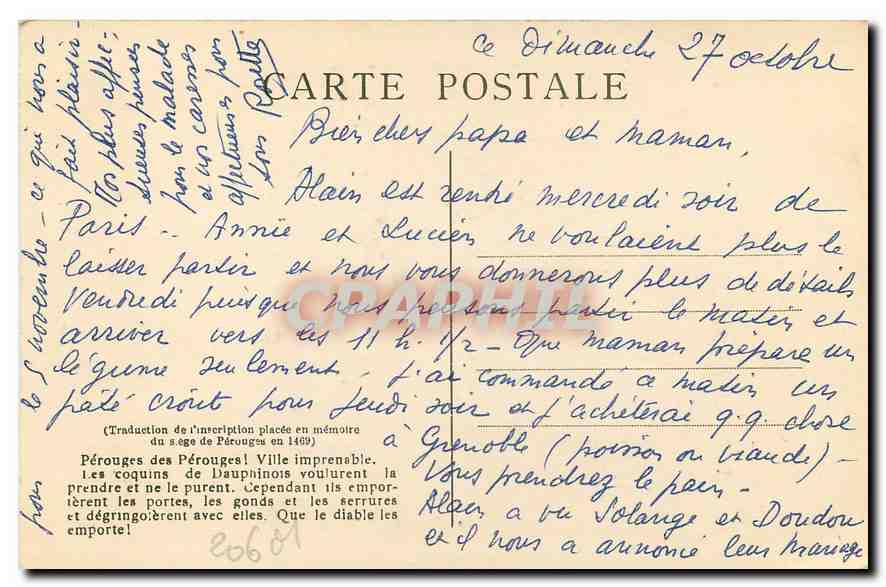 ce Dimanche 27 octobre
CARTE POSTALE
Bien chers papa et maman,
Alain est rentré mercredi soir de
Paris.. Annie et Lucien ne voulaient plus le
laisser partir et nous vous donnerons plus de détails
Vendredi puisque nous pensons partir le matin et
arriver vers les 11 h. 1/2 - Que maman prépare un
légume seulement, j'ai commandé ce matin un
pâté croût pour Jeudi soir et j'achéterai q.q. chose
à Grenoble (poisson ou viande) -
Vous prendrez le pain -
Alain a vu Solange et Doudou
et il nous a annoncé leur mariage
pour le 5 novembre - ce qui nous a
fait plaisir -
Nos plus affec-
tueuses pensées
pour le malade
et nos caresses
affectueuses pour
tous
(Traduction de l'inscription placée en mémoire
du siège de Pérouges en 1469)
Pérouges des Pérouges! Ville imprenable.
Les coquins de Dauphinois voulurent la
prendre et ne le purent. Cependant ils empor-
tèrent les portes, les gonds et les serrures
et dégringolèrent avec elles. Que le diable les
emporte!
20601
CPAPHIL